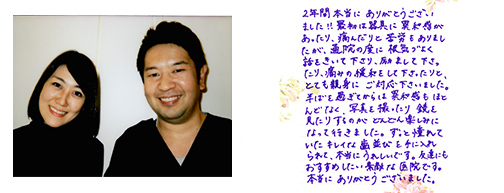 2年間本当に ありがとうござい
ました!!最初は器具に異和感が
あったり、痛んだりと苦労をありまし
たが、通院の度に根気づよく
話をきいて下さり、励まして下さっ
たり、痛みの緩和をして下さったりと、
とても親身に ご対応下さいました。
半ばを過ぎてからは異和感もほと
んどなく、写真を撮ったり 鏡を
見たりするのが どんどん楽しみに
なって行きました。ずっと憧れて
いたキレイな歯並びを手に入れ
られて、本当にうれしいです。友達にも
おすすめしたい素敵な医院です。
本当に ありがとうございました。